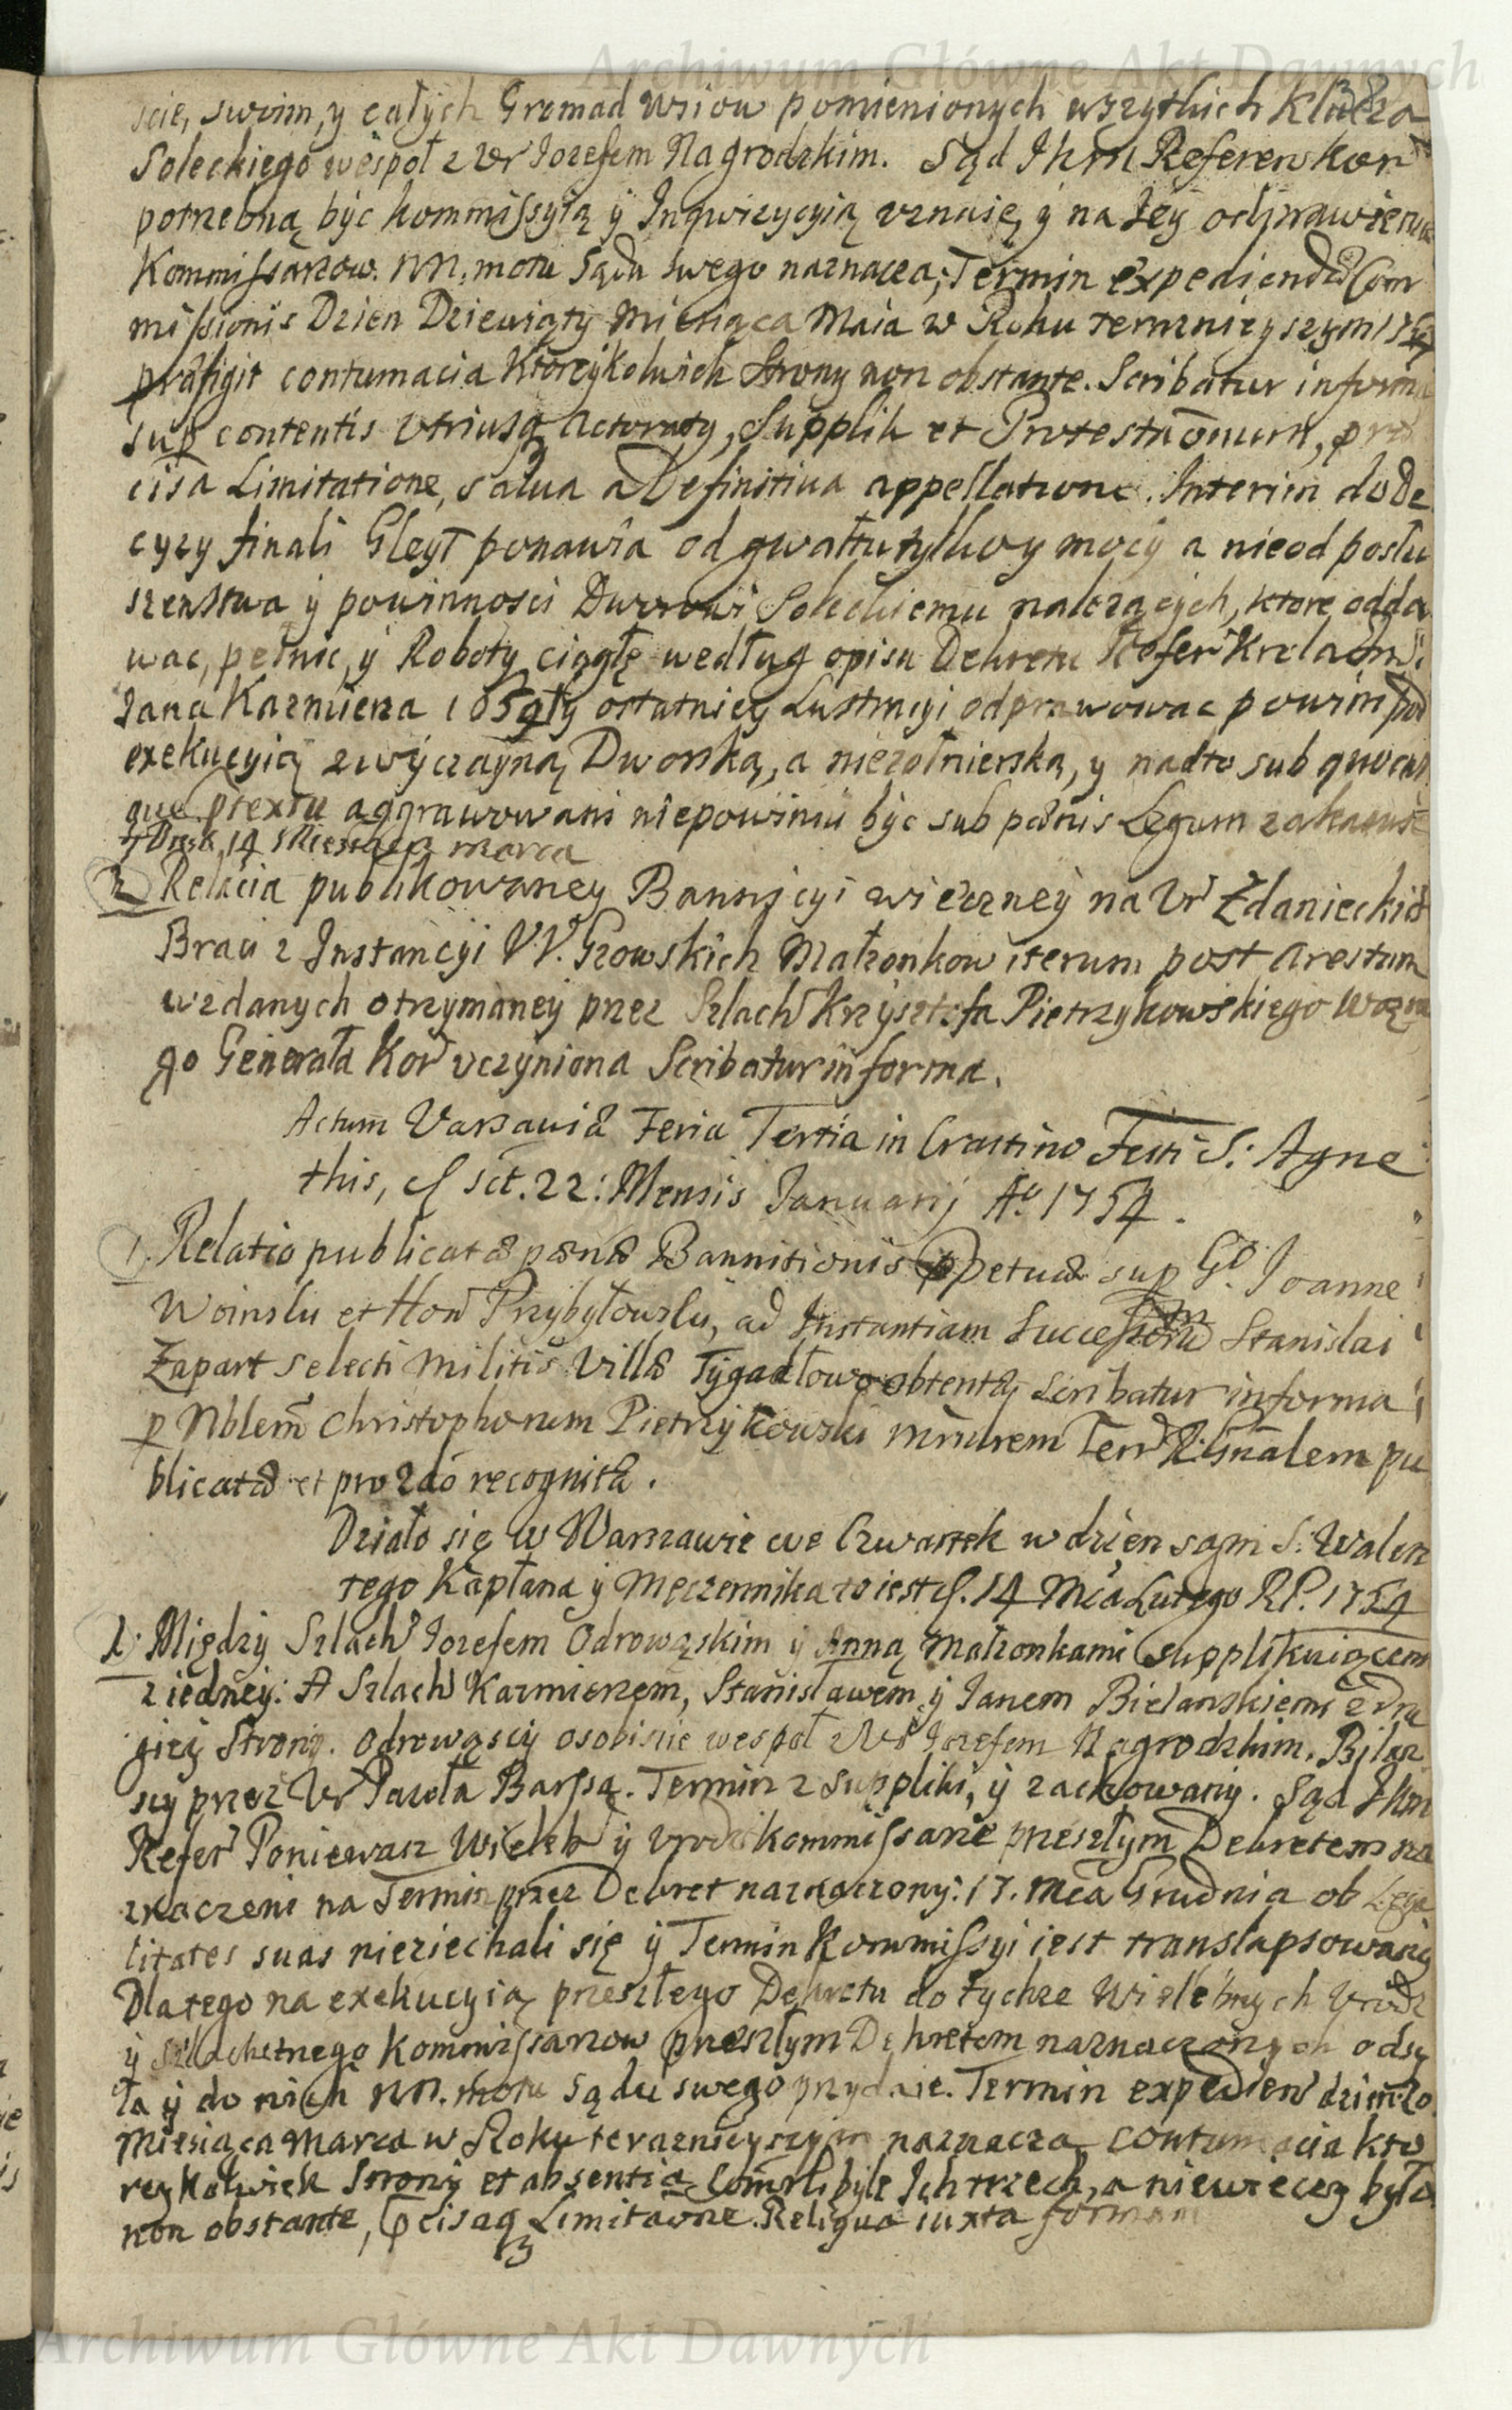 Archiwum Główne Akt Dawnych
38
scie, swoim, y całych Gromad wsiow pomienionych wszytkich Klucza
Soleckiego wespoł z Ur Jozefem Nagrodzkim. Sąd Jkm Referens Kor
potrzebną być kommissyią y Inqwizycyią uznaie, y na Jey odprawienie
Kommissarzow. NN. motu Sądu swego naznacza, Termin expediendæ Com
missionis Dzien Dziewiąty Miesiąca Maia w Roku teraznieyszym 1754
præfigit contumacia Ktoreykolwiek Strony non obstante. Scribatur in forma
sup contentis utriusq Actoraty, Supplik et Protestaõnum, præ
cisa Limitatione, salva a Definitiva appellatione. Interim do De
cyzy finali Gleyt ponawia od gwałtu tylko y mocy a nie od posłu
szenstwa y powinnosci Dworowi Soleckiemu należących, ktore odda
wac, pełnic, y Roboty ciągłę według opisu Dekretu Refer Krola Jmci
Jana Kazmierza 1659 ty ostatniey Lustracyi odprawowac powinni pod
exekucyią zwyczayną Dworską, a nieżołnierską, y nadto sub quocun
que prextu aggrawowani niepowinni być sub pænis Legum zakazuie
2 Relacia publikowaney Bannicyi wieczney na Ur Zdanieckich
Braci z Instancyi W. Gzowskich Małżonkow iterum post Arestum
wzdanych otrzymaney przez Szlach Krzysztofa Pietrzykowskiego Wozne
go Generała Kor uczyniona Scribatur in forma.
Actum Varsaviæ Feria Tertia in Crastino Festi S. Agne
this, d sct. 22: Mensis Januarij Aº 1754.
1. Relatio publicatæ pænæ Bannitionis ppetuæ sup Gd. Joanne
Woinski et Hon Przybyłowski, ad Instantiam Successorum Stanislai
Zapart selecti Militis Villæ Tygadłowo obtentæ, scribatur in forma
p Nblem Christophorum Pietrzykowski Mrñlrem Terr R. Gñalem pu
blicatæ et pro zdo recognitæ.
Działo się w Warszawie we Czwartek w dzien sam S. Walen
tego Kapłana y Męczennika to iest d. 14 Mca Lutego RP. 1754
1. Między Szlach Jozefem Odrowąskim y Anną Małżonkami Supplikuiącem
z iedney: A Szlach Kazmierzem, Stanisławem y Janem Bielanskiemi z dru
giey Strony. Odrowąscy osobiscie wespoł z Ur Jozefem Nagrodzkim. Bilan
scy przez Ur Pawła Barssa. Termin z Suppliki, y zachowany. Sąd Jkm
Refer Poniewasz Wieleb y Urodz kommissarze przeszłym Dekretem na
znaczeni na Termin przez Dekret naznaczony: 17. Mca Grudnia ob Lega
litates suas nieziechali się y Termin Kommissyi iest translapsowany
Dlatego na exekucyią przeszłego Dekretu do tychze Wielebnych Urodz
y Szlachetnego Kommissarzow przeszłym Dekretem naznaczonych odsy
ła y do nich NN. motu Sądu swego przydaie. Termin expediend dzien 20.
Miesiąca Marca w Roku teraznieyszym naznacza contumacia kto
reykolwiek Strony et absentia Comrli byle Ich trzech, a niewięcey było
non obstante, pcisaq Limitaõne. Reliqua iuxta formam
Archiwum Główne Akt Dawnych